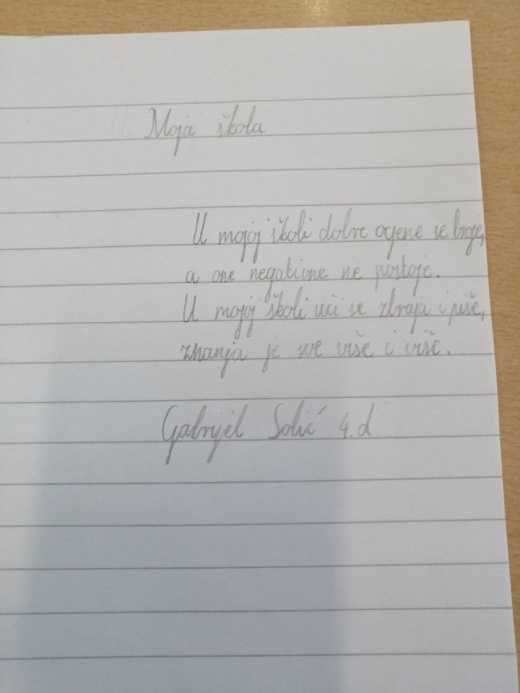 Moja škola
U mojoj školi dobre ocjene se broje,
a one negativne ne postoje.
U mojoj školi uči se zbraja i piše,
znanja je sve više i više.
Gabrijel Solić 4.d